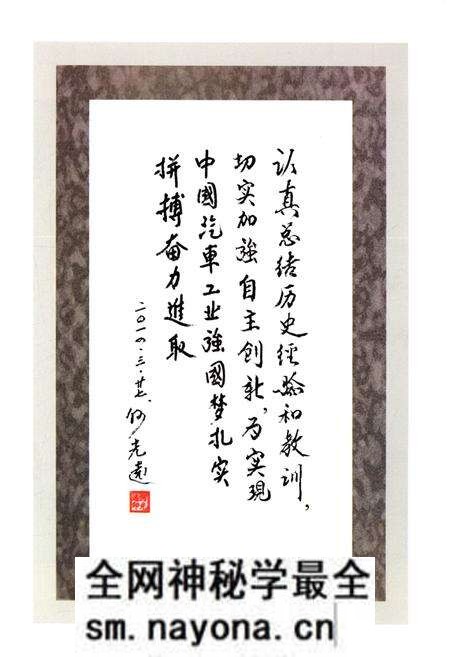 认真总结历史经验和教训，
切实加強自主创新，为实现
中國汽車工业強國梦扎实
拼搏奋力進取
二〇一四·三·廿七、何光远
全网神秘学最全
sm.nayona.cn